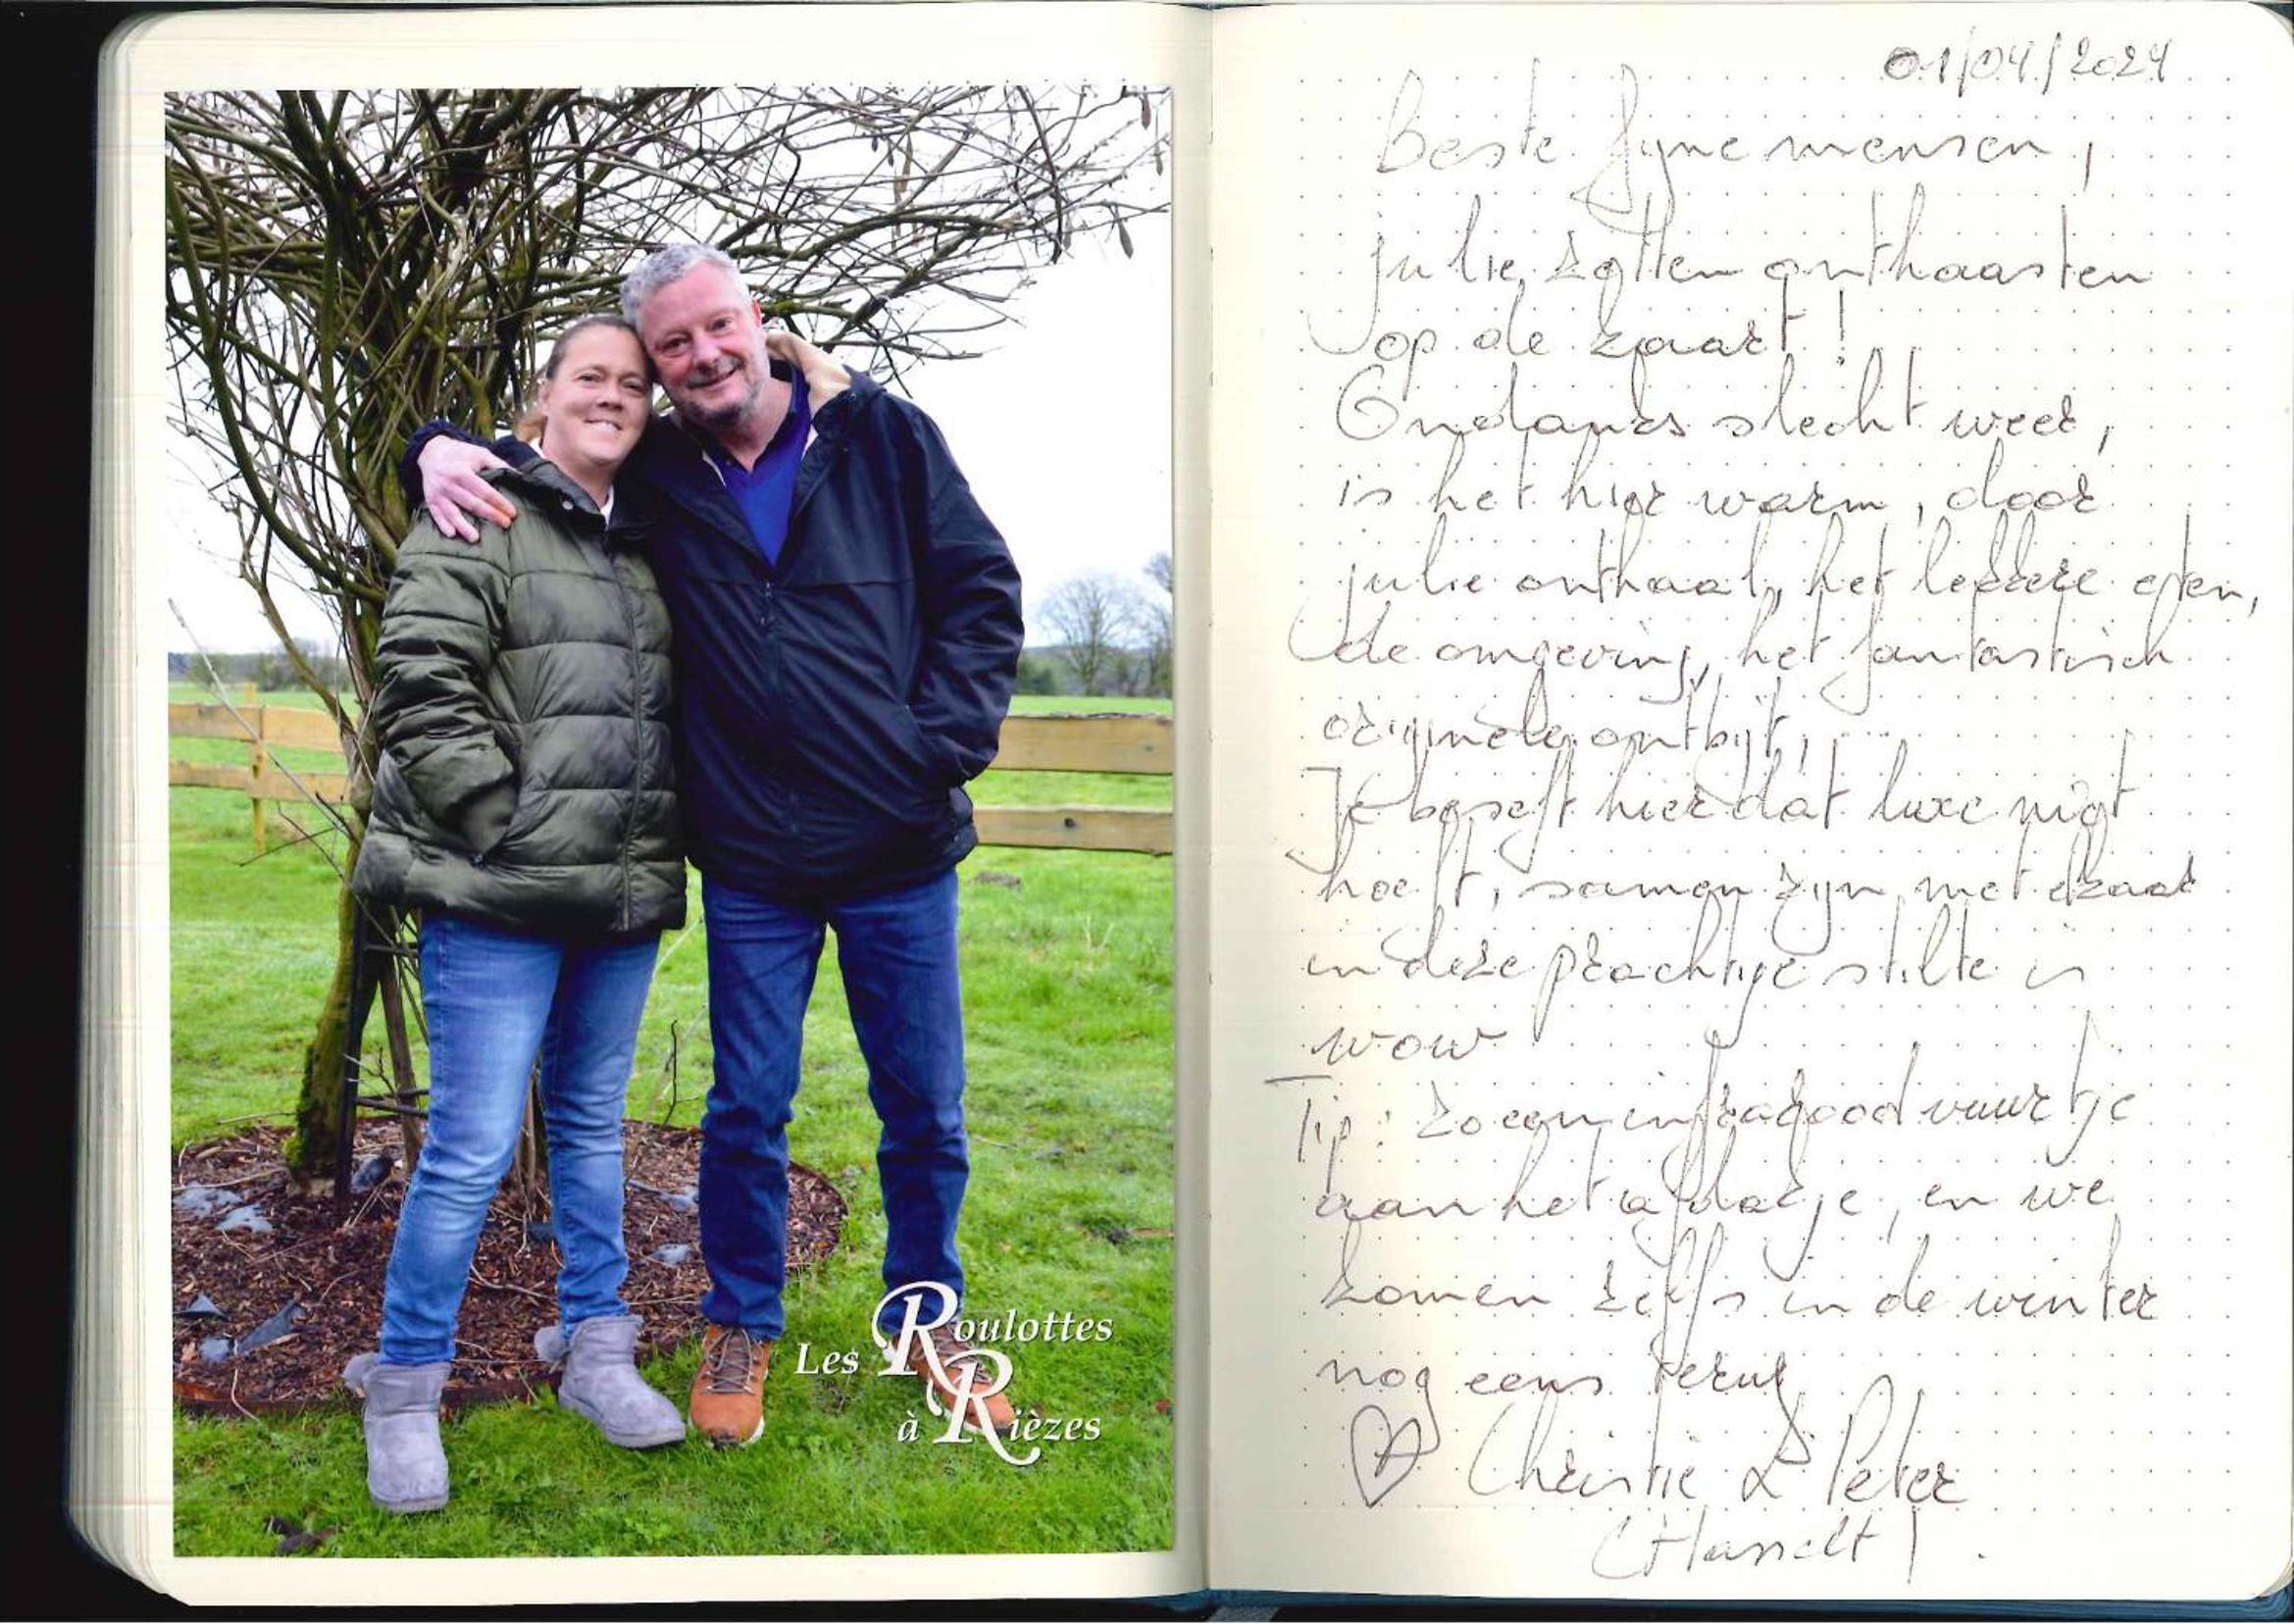 Les Roulottes
à Rièzes
01/04/2024
Beste fijne mensen,
jullie zetten onthaasten
op de kaart!
Ondanks slecht weer,
is het hier warm, door
jullie onthaal, het lekkere eten,
de omgeving, het fantastisch
originele ontbijt,
Je beseft hier dat luxe niet
hoeft, samen zijn met elkaar
in deze prachtige stilte is
wow
Tip: zo een infrarood vuurtje
aan het afdakje, en we
komen zelfs in de winter
nog eens terug
Christie & Peter
(Hasselt)